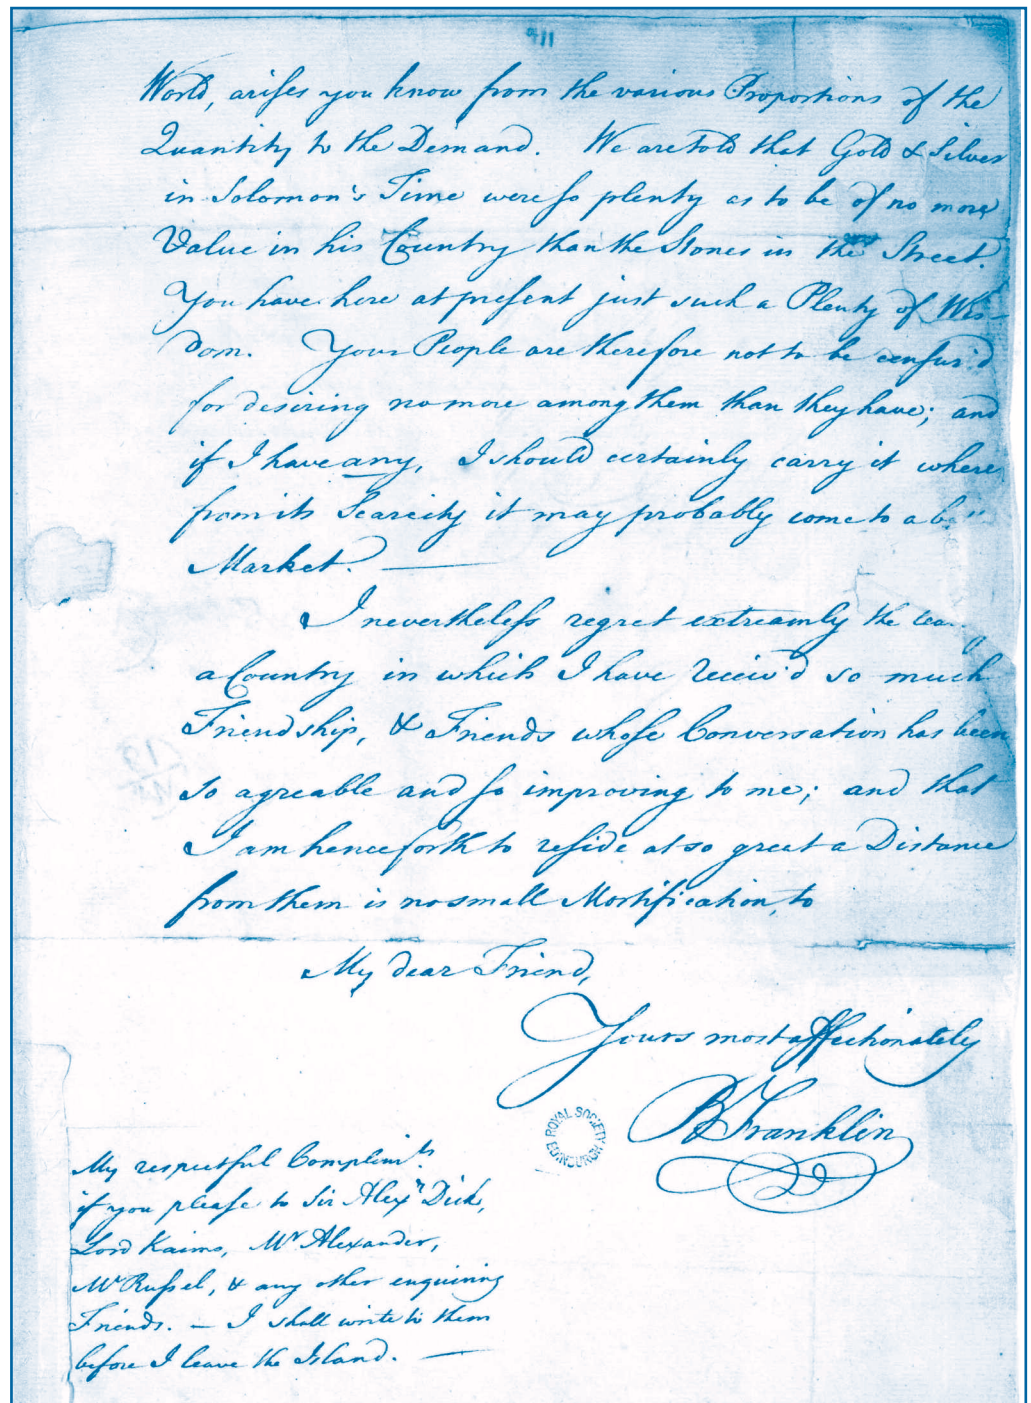 911
World, arises you know from the various Proportions of the
Quantity to the Demand. We are told that Gold & Silver
in Solomon's Time were so plenty as to be of no more
Value in his Country than the Stones in the Street.
You have here at present just such a Plenty of Wis-
dom. Your People are therefore not to be censur'd
for desiring no more among them than they have; and
if I have any, I should certainly carry it where
from its Scarcity it may probably come to a
Market.
I nevertheless regret extreamly the
a Country in which I have receiv'd so much
Friendship, & Friends whose Conversation has been
so agreable and so improving to me; and that
I am henceforth to reside at so great a Distance
from them is no small Mortification, to
My dear Friend,
Yours most affectionately
B Franklin
ROYAL SOCIETY EDINBURGH
My respectful Complimts.
if you please to Sir Alexr. Dick,
Lord Kaims, Mr Alexander,
Mr Russel, & any other enquiring
Friends. — I shall write to them
before I leave the Island. —